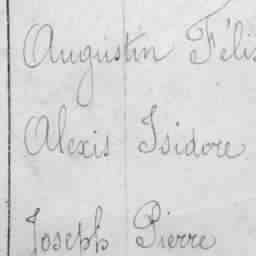 Augustin Félix
Alexis Isidore
Joseph Pierre